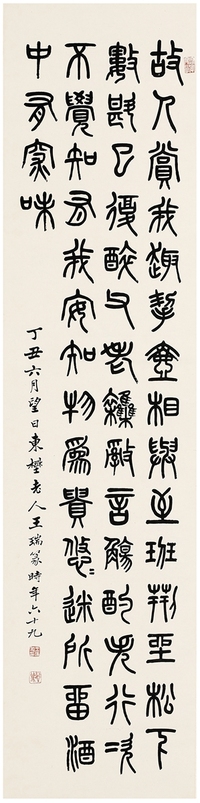 故人賞我趣挈壺相與至班荊坐松下
數斟已復醉父老雜亂言觴酌失行次
不覺知有我安知物為貴悠悠迷所留酒
中有深味
丁丑六月望日東壄老人王瑞篆時年六十九